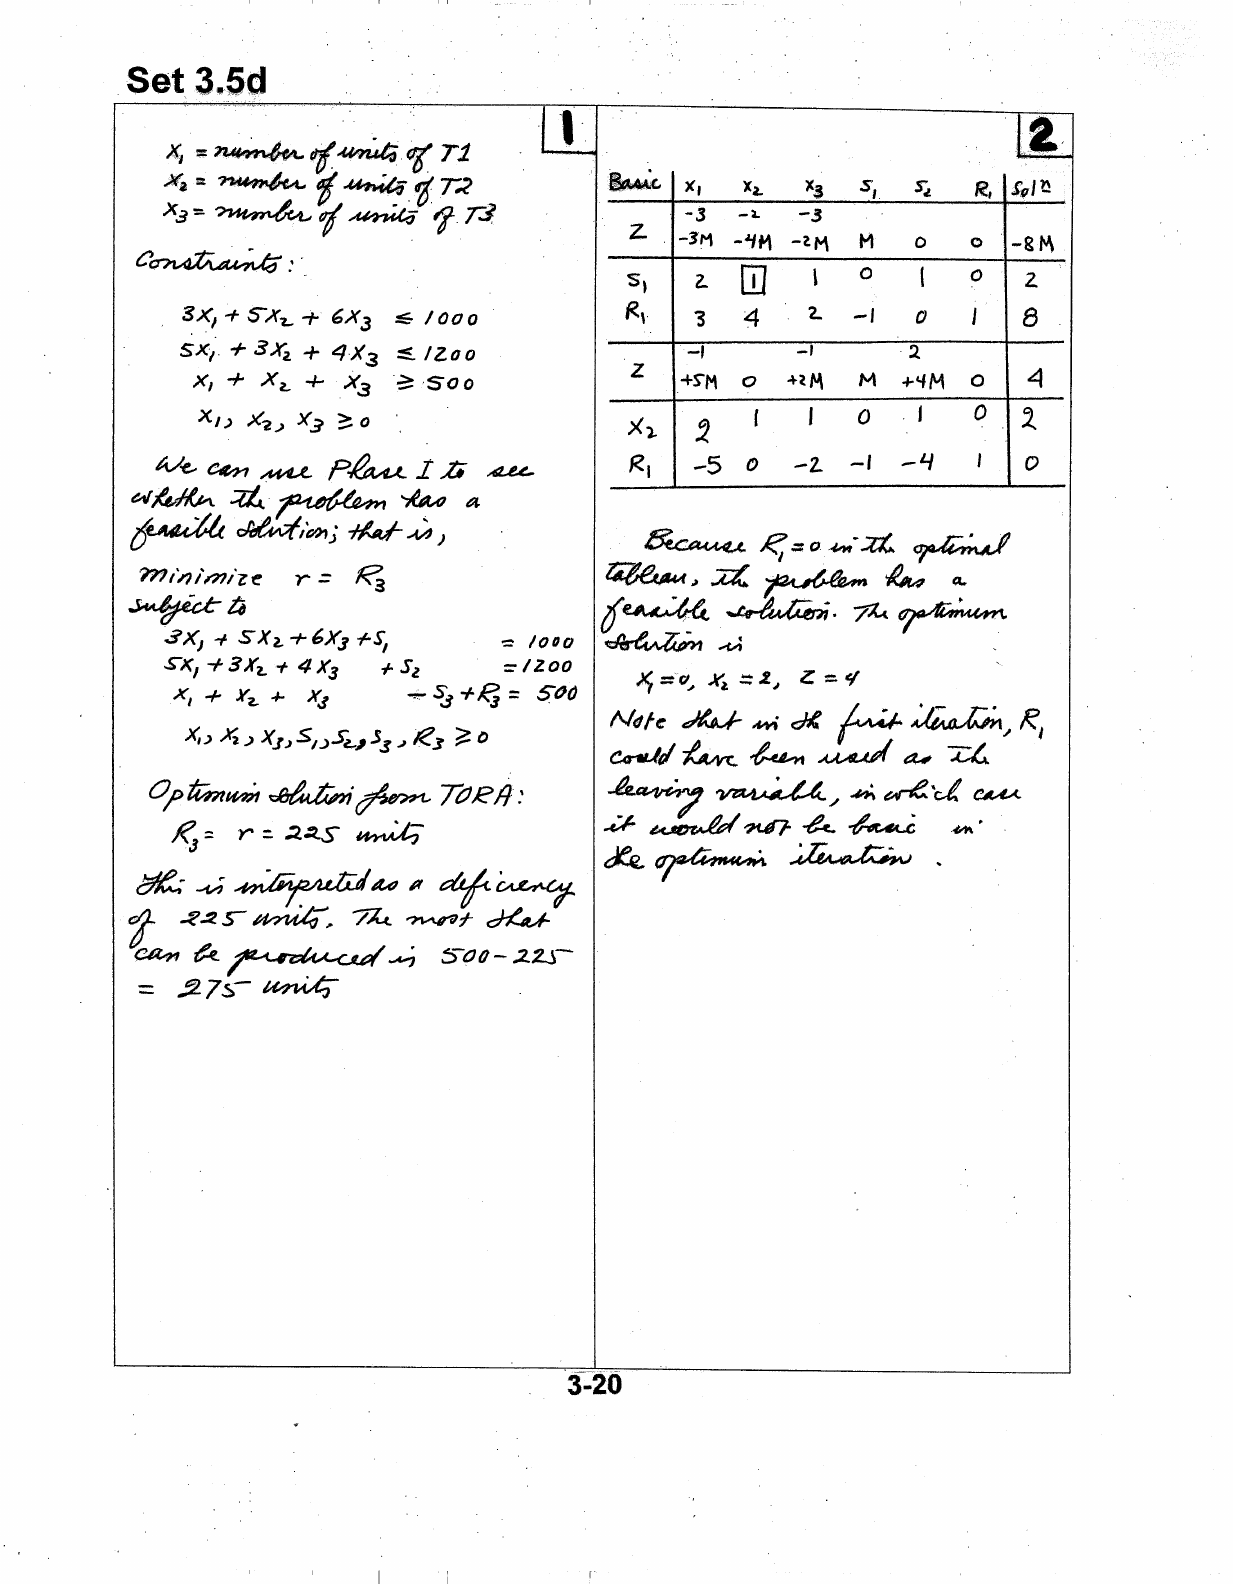 Set 3.5d
1
x₁ = number of units of T1
x₂ = number of units of T2
x₃ = number of units of T3
Constraints:
3x₁ + 5x₂ + 6x₃ ≤ 1000
5x₁ + 3x₂ + 4x₃ ≤ 1200
x₁ + x₂ + x₃ ≥ 500
x₁, x₂, x₃ ≥ 0
We can use Phase I to see
whether the problem has a
feasible solution; that is,
minimize r = R₃
subject to
3x₁ + 5x₂ + 6x₃ + S₁ = 1000
5x₁ + 3x₂ + 4x₃ + S₂ = 1200
x₁ + x₂ + x₃ - S₃ + R₃ = 500
x₁, x₂, x₃, S₁, S₂, S₃, R₃ ≥ 0
Optimum solution from TORA:
R₃ = r = 225 units
This is interpreted as a deficiency
of 225 units. The most that
can be produced is 500 - 225
= 275 units
2
Basic x₁ x₂ x₃ S₁ S₂ R₁ Solⁿ
-3 -2 -3
Z -3M -4M -2M M 0 0 -8M
S₁ 2 1 1 0 1 0 2
R₁ 3 4 2 -1 0 1 8
-1 -1 2
Z +5M 0 +2M M +4M 0 4
x₂ 2 1 1 0 1 0 2
R₁ -5 0 -2 -1 -4 1 0
Because R₁ = 0 in the optimal
tableau, the problem has a
feasible solution. The optimum
solution is
x₁ = 0, x₂ = 2, Z = 4
Note that in the first iteration, R₁
could have been used as the
leaving variable, in which case
it would not be basic in
the optimum iteration.
3-20